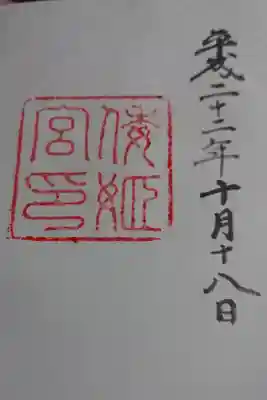 平成二十二年十月十八日
倭姫
宮印